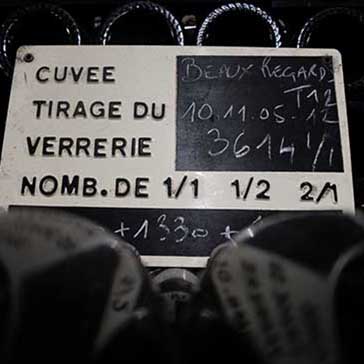 CUVEE BEAUX REGARDS
T12
TIRAGE DU 10.11.05-12
VERRERIE 3614 1/1
NOMB. DE 1/1 1/2 2/1
+1330 +